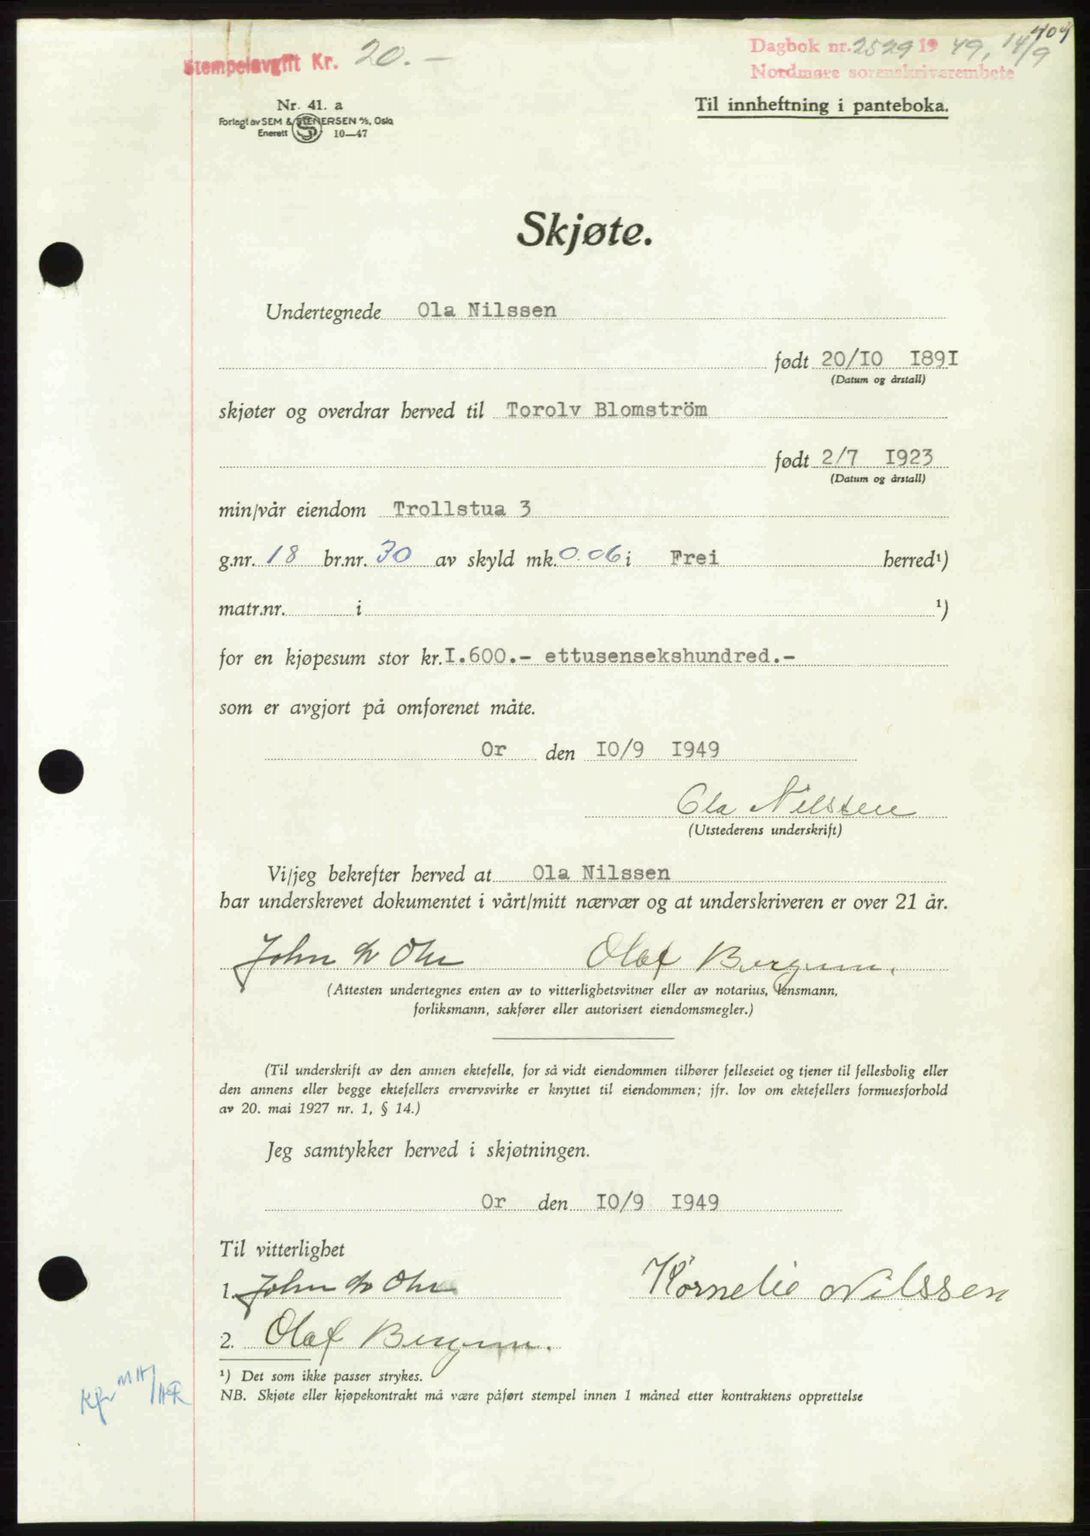 404
Dagbok nr. 2529 1949, 14/9
Nordmøre sorenskriverembete
Stempelavgift Kr. 20.-
Nr. 41. a
Forlagt av SEM & STENERSEN A/S, Oslo
Enerett 10—47
Til innheftning i panteboka.
Skjøte.
Undertegnede Ola Nilssen
født 20/IO I89I
(Datum og årstall)
skjøter og overdrar herved til Torolv Blomström
født 2/7 I923
(Datum og årstall)
min/vår eiendom Trollstua 3
g.nr. 18 br.nr. 30 av skyld mk. 0.06 i Frei herred¹)
matr.nr. i ¹)
for en kjøpesum stor kr. I.600.- ettusensekshundred.-
som er avgjort på omforenet måte.
Or den IO/9 I949
Ola Nilssen
(Utstederens underskrift)
Vi/jeg bekrefter herved at Ola Nilssen
har underskrevet dokumentet i vårt/mitt nærvær og at underskriveren er over 21 år.
John Ohr Olaf Bergum.
(Attesten undertegnes enten av to vitterlighetsvitner eller av notarius, lensmann,
forliksmann, sakfører eller autorisert eiendomsmegler.)
(Til underskrift av den annen ektefelle, for så vidt eiendommen tilhører felleseiet og tjener til fellesbolig eller
den annens eller begge ektefellers ervervsvirke er knyttet til eiendommen; jfr. lov om ektefellers formuesforhold
av 20. mai 1927 nr. 1, § 14.)
Jeg samtykker herved i skjøtningen.
Or den IO/9 I949
Til vitterlighet
1. John Ohr Kornelie Nilssen
2. Olaf Bergum.
¹) Det som ikke passer strykes.
NB. Skjøte eller kjøpekontrakt må være påført stempel innen 1 måned etter kontraktens opprettelse